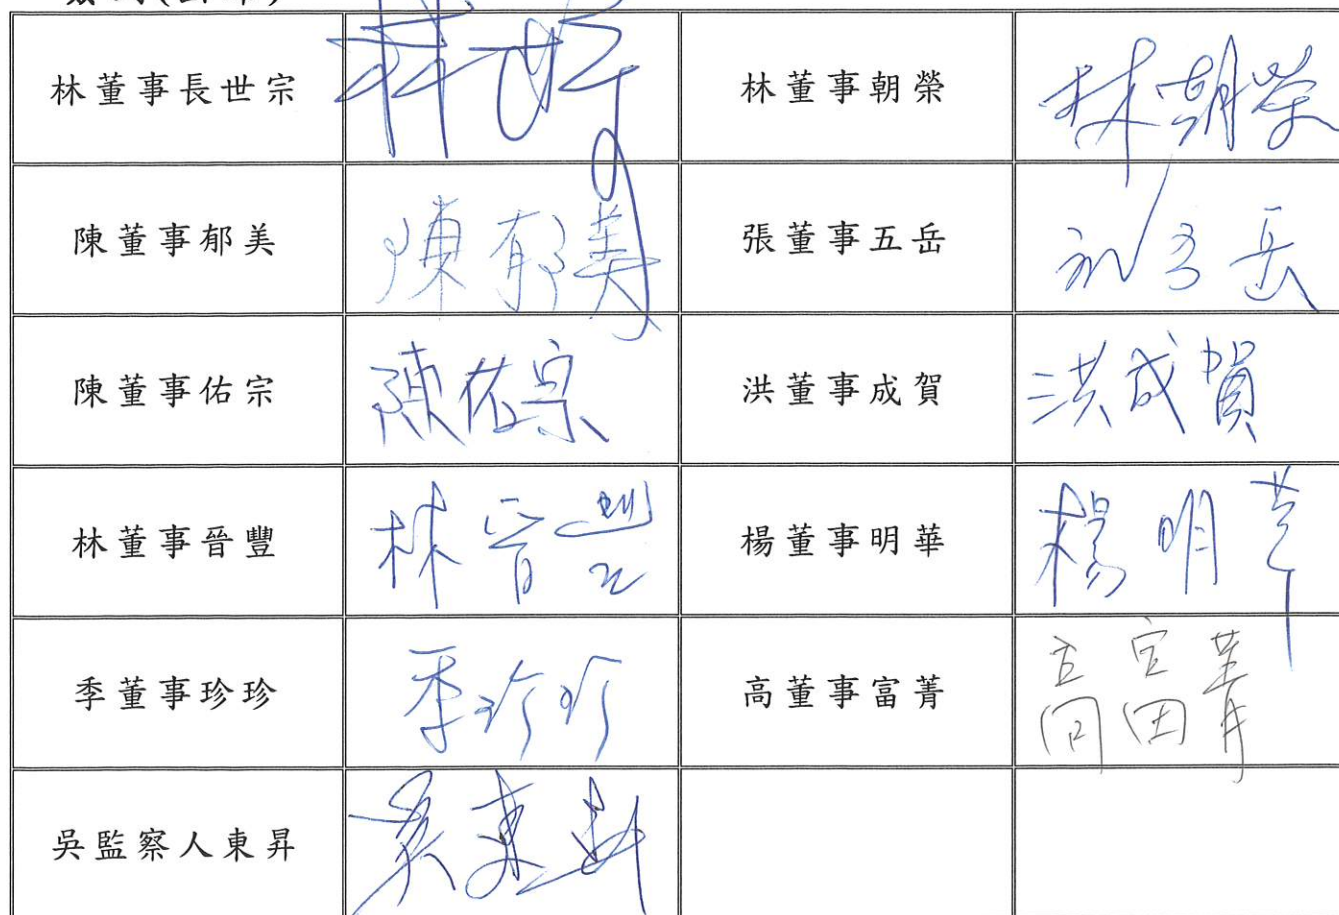 林董事長世宗 林世宗 林董事朝榮 林朝榮
陳董事郁美 陳郁美 張董事五岳 張五岳
陳董事佑宗 陳佑宗 洪董事成賀 洪成賀
林董事晉豐 林晉豐 楊董事明華 楊明華
季董事珍珍 季珍珍 高董事富菁 高富菁
吳監察人東昇 吳東昇